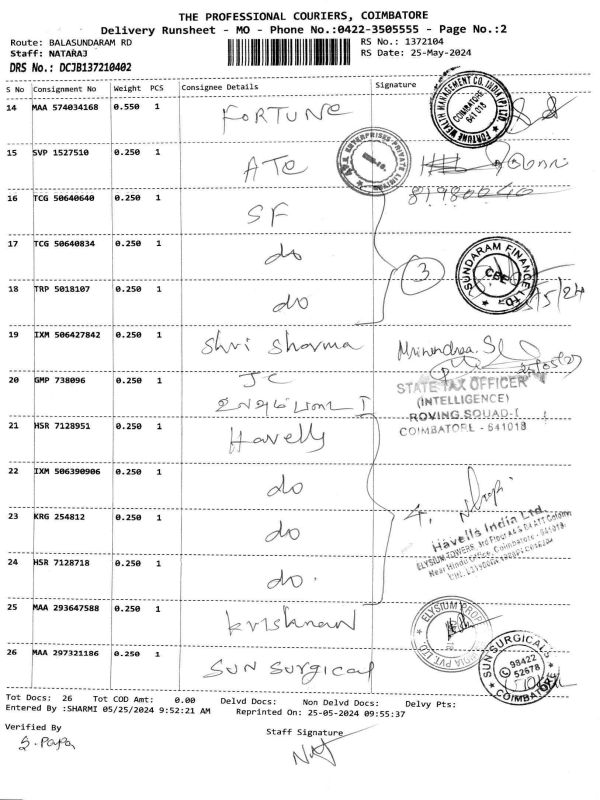 THE PROFESSIONAL COURIERS, COIMBATORE
Delivery Runsheet - MO - Phone No.:0422-3505555 - Page No.:2
Route: BALASUNDARAM RD
RS No.: 1372104
Staff: NATARAJ
RS Date: 25-May-2024
DRS No.: DCJB137210402
S No Consignment No Weight PCS Consignee Details Signature
14 MAA 574034168 0.550 1 FORTUNE
FORTUNE WEALTH MANAGEMENT CO. INDIA (P) LTD.
COIMBATORE
641 018
15 SVP 1527510 0.250 1 ATC
ENTERPRISES PRIVATE LIMITED
16 TCG 50640640 0.250 1 SF
17 TCG 50640834 0.250 1 do
3
SUNDARAM FINANCE LTD
CBE
18 TRP 5018107 0.250 1 do
19 IXM 506427842 0.250 1 Shri Sharma
20 GMP 738096 0.250 1 JC
STATE TAX OFFICER
(INTELLIGENCE)
ROVING SQUAD-I
COIMBATORE - 641018
21 HSR 7128951 0.250 1 Havells
22 IXM 506390906 0.250 1 do
4.
23 KRG 254812 0.250 1 do
Havells India Ltd.
ELYSIUM TOWERS, 3rd Floor
Near Hindu Office, Coimbatore - 641018.
24 HSR 7128718 0.250 1 do.
25 MAA 293647588 0.250 1 Krishnan
ELYSIUM PVT LTD
26 MAA 297321186 0.250 1 SUN Surgical
SUN SURGICALS
98422
52678
COIMBATORE
Tot Docs: 26 Tot COD Amt: 0.00 Delvd Docs: Non Delvd Docs: Delvy Pts:
Entered By :SHARMI 05/25/2024 9:52:21 AM Reprinted On: 25-05-2024 09:55:37
Verified By
Staff Signature
S. Papa